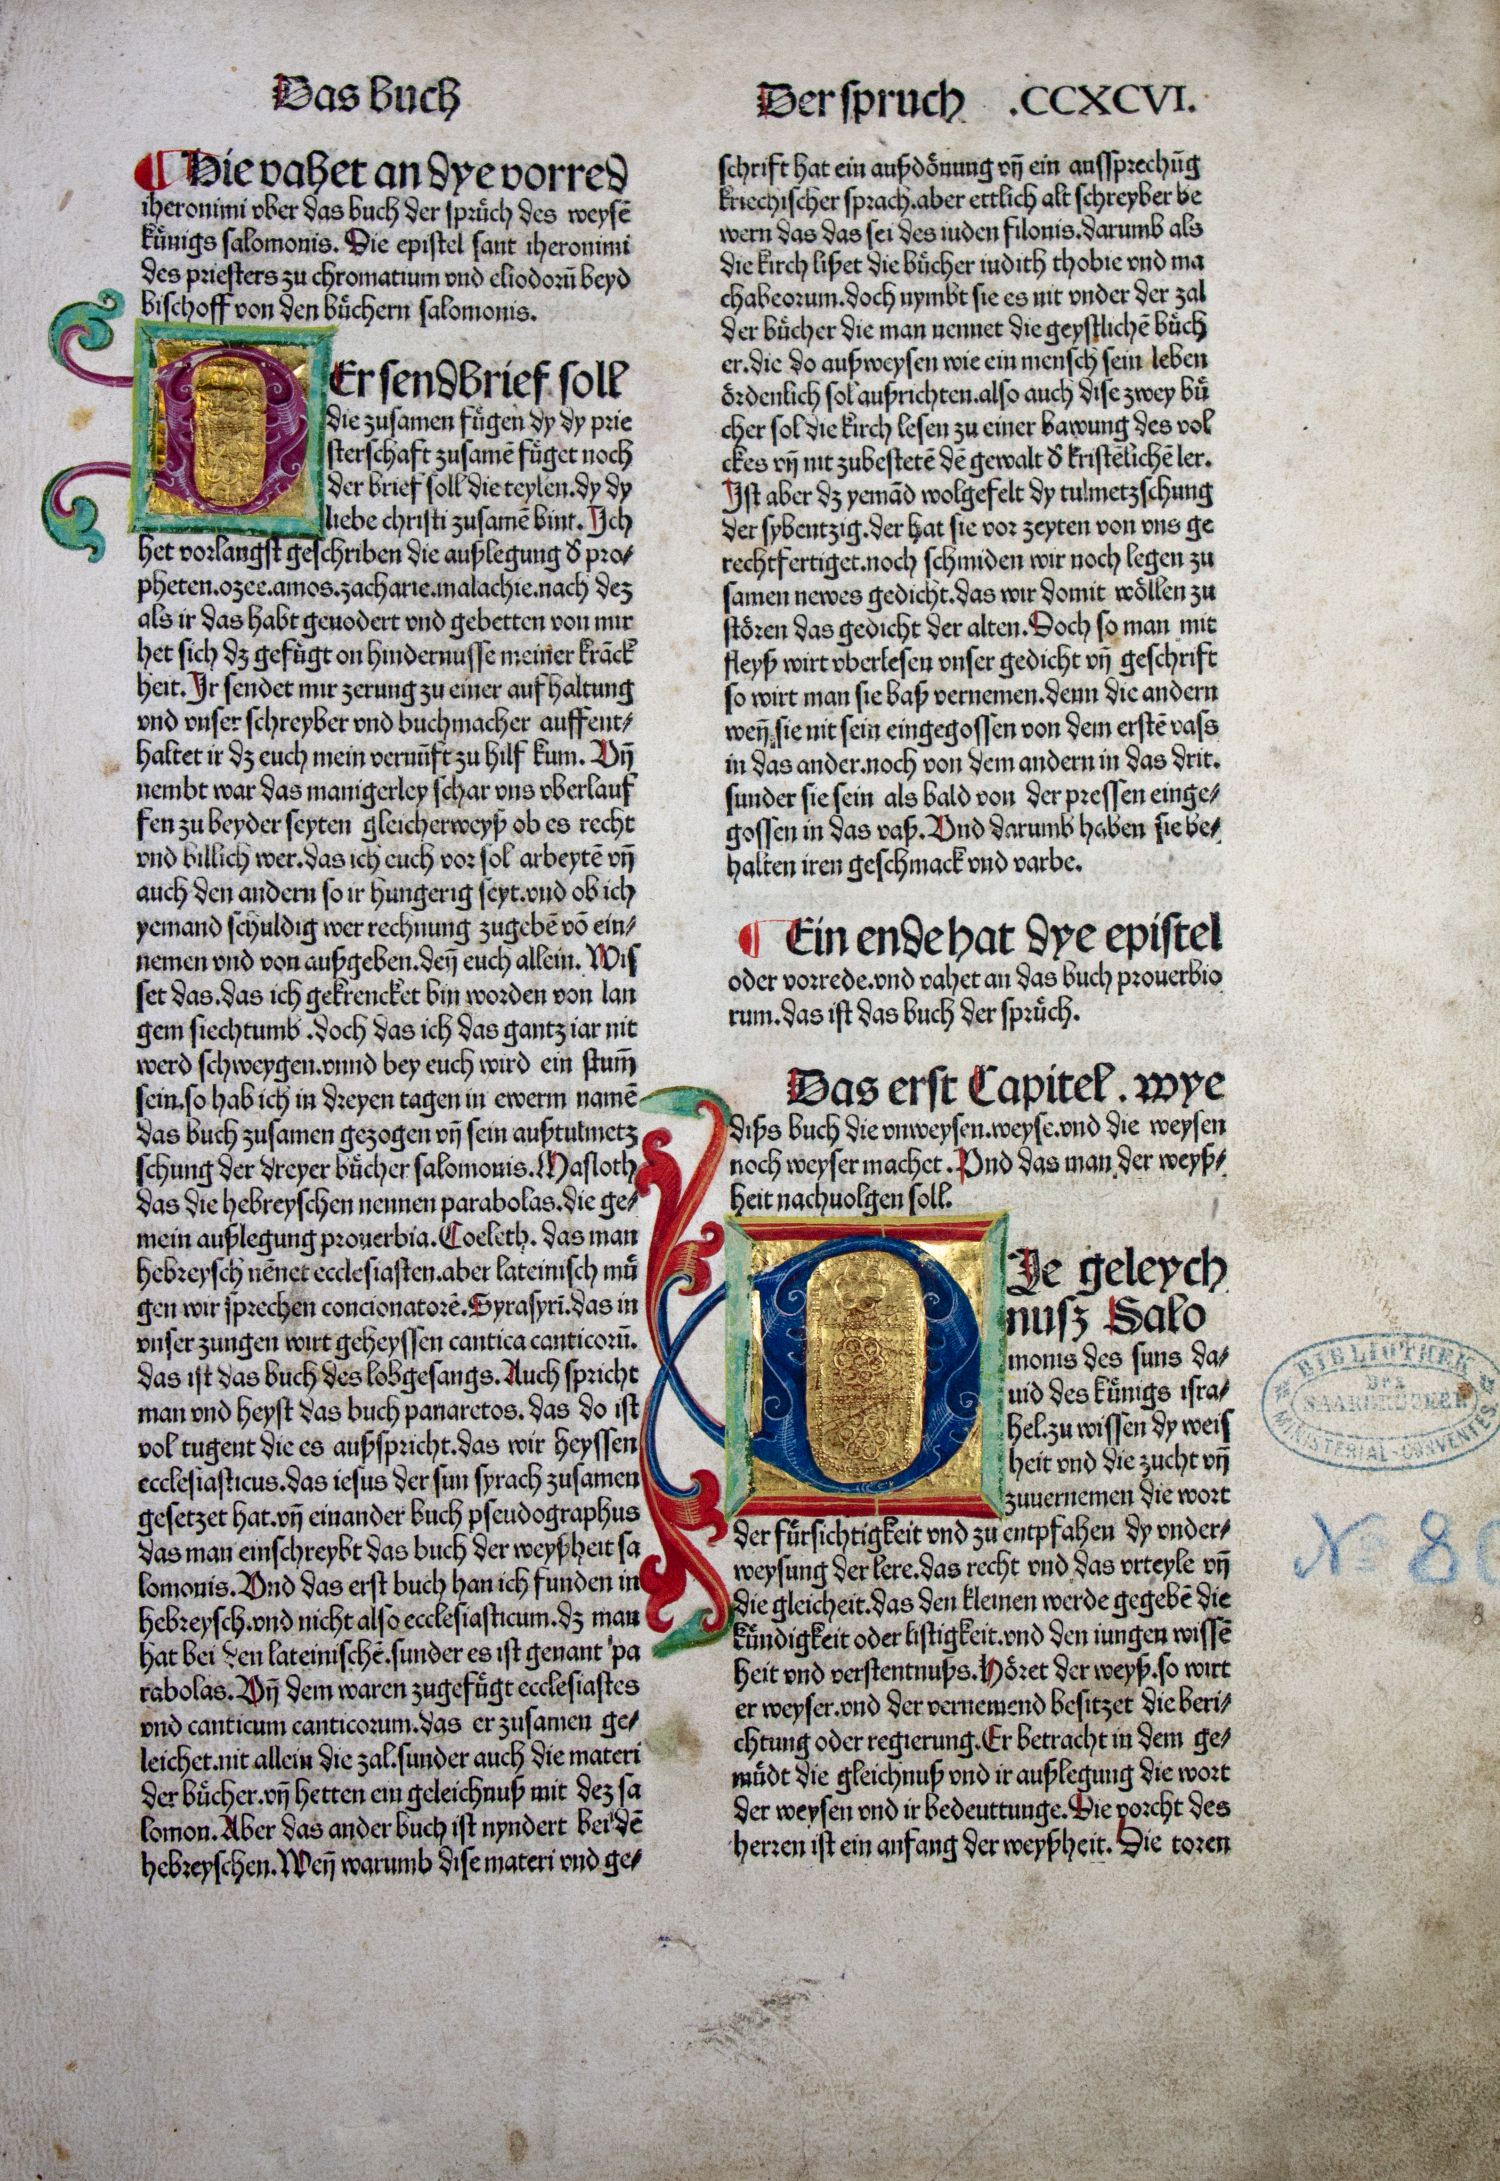 Das buch
Der spruch .CCXCVI.
Hie vahet an dye vorred
iheronimi vber das buch der sprüch des weysē
künigs salomonis. Die epistel sant iheronimi
des priesters zu chromatium vnd eliodorū beyd
bischoff von den büchern salomonis.
DEr sendbrief soll
die zusamen fügen dy dy prie
sterschaft zusamē füget noch
der brief soll die teylen.dy dy
liebe christi zusamē bint. Ich
het vorlangst geschriben die außlegung d͛ pro⸗
pheten.ozee.amos.zacharie.malachie.nach dez
als ir das habt geuodert vnd gebetten von mir
het sich dz gefügt on hindernusse meiner krāck
heit. Ir sendet mir zerung zu einer aufhaltung
vnd vnser schreyber vnd buchmacher auffent⸗
haltet ir dz euch mein vernūft zu hilf kum. Vn̄
nembt war das manigerley schar vns vberlauf
fen zu beyder seyten gleicherweyß ob es recht
vnd billich wer.das ich euch vor sol arbeytē vn̄
auch den andern so ir hungerig seyt.vnd ob ich
yemand schuldig wer rechnung zugebē vō ein⸗
nemen vnd von außgeben.den̄ euch allein. Wis
set das.das ich gekrencket bin worden von lan
gem siechtumb .doch das ich das gantz iar nit
werd schweygen.vnnd bey euch wird ein stum̄
sein.so hab ich in dreyen tagen in ewerm namē
das buch zusamen gezogen vn̄ sein außtulmetz
schung der dreyer bücher salomonis. Masloth
das die hebreyschen nennen parabolas.die ge⸗
mein außlegung prouerbia. Coeleth. das man
hebreysch nēnet ecclesiasten.aber lateinisch mü
gen wir sprechen concionatorē. Syrasyrī.das in
vnser zungen wirt geheyssen cantica canticorū.
das ist das buch des lobgesangs. Auch spricht
man vnd heyst das buch panaretos. das do ist
vol tugent die es außspricht.das wir heyssen
ecclesiasticus.das iesus der sun syrach zusamen
gesetzet hat.vn̄ einander buch pseudographus
das man einschreybt das buch der weyßheit sa
lomonis. Vnd das erst buch han ich funden in
hebreysch.vnd nicht also ecclesiasticum.dz man
hat bei den lateinischē.sunder es ist genant pa
rabolas. Vn̄ dem waren zugefügt ecclesiastes
vnd canticum canticorum.das er zusamen ge⸗
leichet.nit allein die zal.sunder auch die materi
der bücher.vn̄ hetten ein geleichnuß mit dez sa
lomon. Aber das ander buch ist nyndert bei dē
hebreyschen. Wen̄ warumb dise materi vnd ge⸗
schrift hat ein außdönung vn̄ ein aussprechūg
kriechischer sprach.aber ettlich alt schreyber be
wern das das sei des iuden filonis.darumb als
die kirch lißet die bücher iudith thobie vnd ma
chabeorum.doch nymbt sie es nit vnder der zal
der bücher die man nennet die geystlichē büch
er.die do außweysen wie ein mensch sein leben
ördenlich sol außrichten.also auch dise zwey bü
cher sol die kirch lesen zu einer bawung des vol
ckes vn̄ nit zubestetē dē gewalt d͛ kristēlichē ler.
Ist aber dz yemād wolgefelt dy tulmetzschung
der sybentzig.der hat sie vor zeyten von vns ge
rechtfertiget.noch schmiden wir noch legen zu
samen newes gedicht.das wir domit wöllen zu
stören das gedicht der alten. Doch so man mit
fleyß wirt vberlesen vnser gedicht vn̄ geschrift
so wirt man sie baß vernemen.denn die andern
wen̄ sie nit sein eingegossen von dem erstē vass
in das ander.noch von dem andern in das drit.
sunder sie sein als bald von der pressen einge⸗
gossen in das vaß. Vnd darumb haben sie be⸗
halten iren geschmack vnd varbe.
Ein ende hat dye epistel
oder vorrede.vnd vahet an das buch prouerbio
rum.das ist das buch der sprüch.
Das erst Capitel. wye
diß buch die vnweysen.weyse.vnd die weysen
noch weyser machet. Vnd das man der weyß⸗
heit nachuolgen soll.
DIe geleych
nusz Salo
monis des suns da⸗
uid des künigs isra⸗
hel.zu wissen dy weis
heit vnd die zucht vn̄
zuuernemen die wort
der fürsichtigkeit vnd zu entpfahen dy vnder⸗
weysung der lere.das recht vnd das vrteyle vn̄
die gleicheit.das den kleinen werde gegebē die
kündigkeit oder listigkeit.vnd den iungen wissē
heit vnd verstentnuß. Höret der weyß.so wirt
er weyser.vnd der vernemend besitzet die beri⸗
chtung oder regierung. Er betracht in dem ge⸗
müdt die gleichnuß vnd ir außlegung die wort
der weysen vnd ir bedeuttunge. Die vorcht des
herren ist ein anfang der weyßheit. Die toren
BIBLIOTHEK
DES
SAARBRÜCKER
MINISTERIAL-CONVENTES
No 80